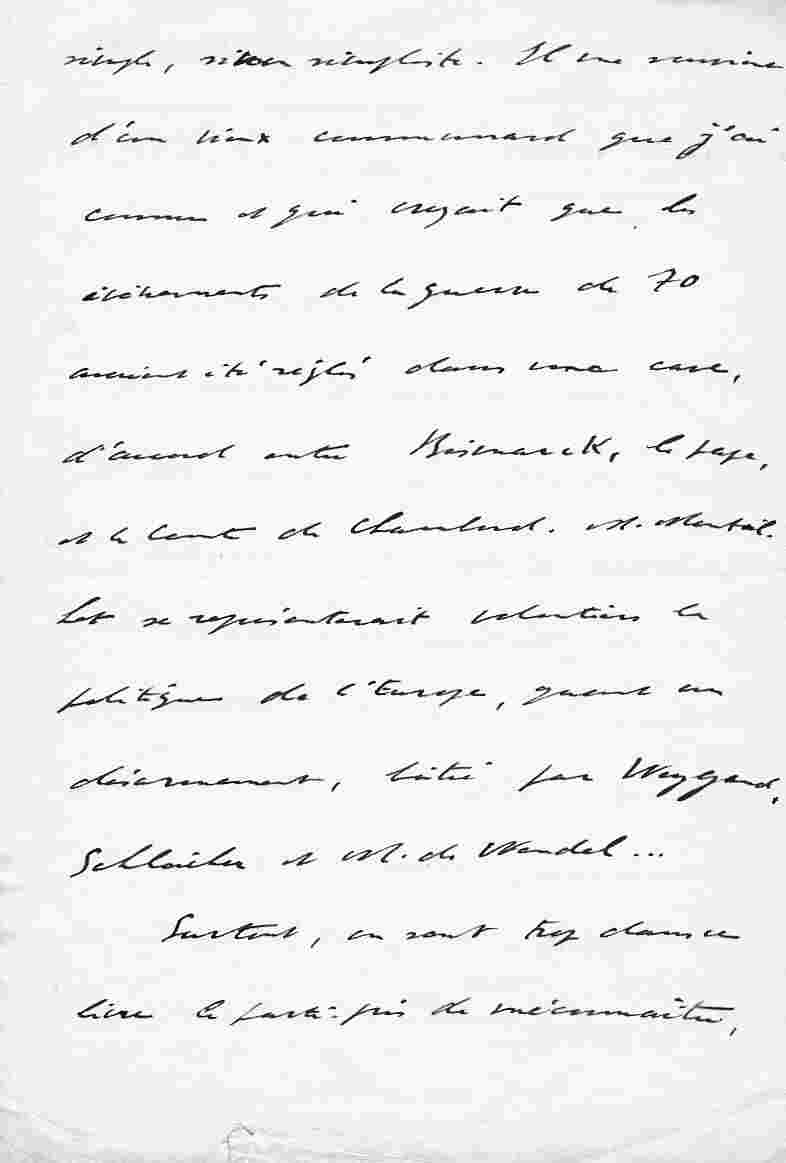 simple, sinon simpliste. Il me souvient
d'un vieux communard que j'ai
connu et qui croyait que les
événements de la guerre de 70
avaient été réglés dans une cave,
d'accord entre Bismarck, le pape,
et le Comte de Chambord. M.
Let se représenterait volontiers la
politique de l'Europe, quant au
désarmement, bâtie par Weygand,
Schleicher et M. de Wendel...
Surtout, on sent trop dans ce
livre le parti-pris de méconnaître,